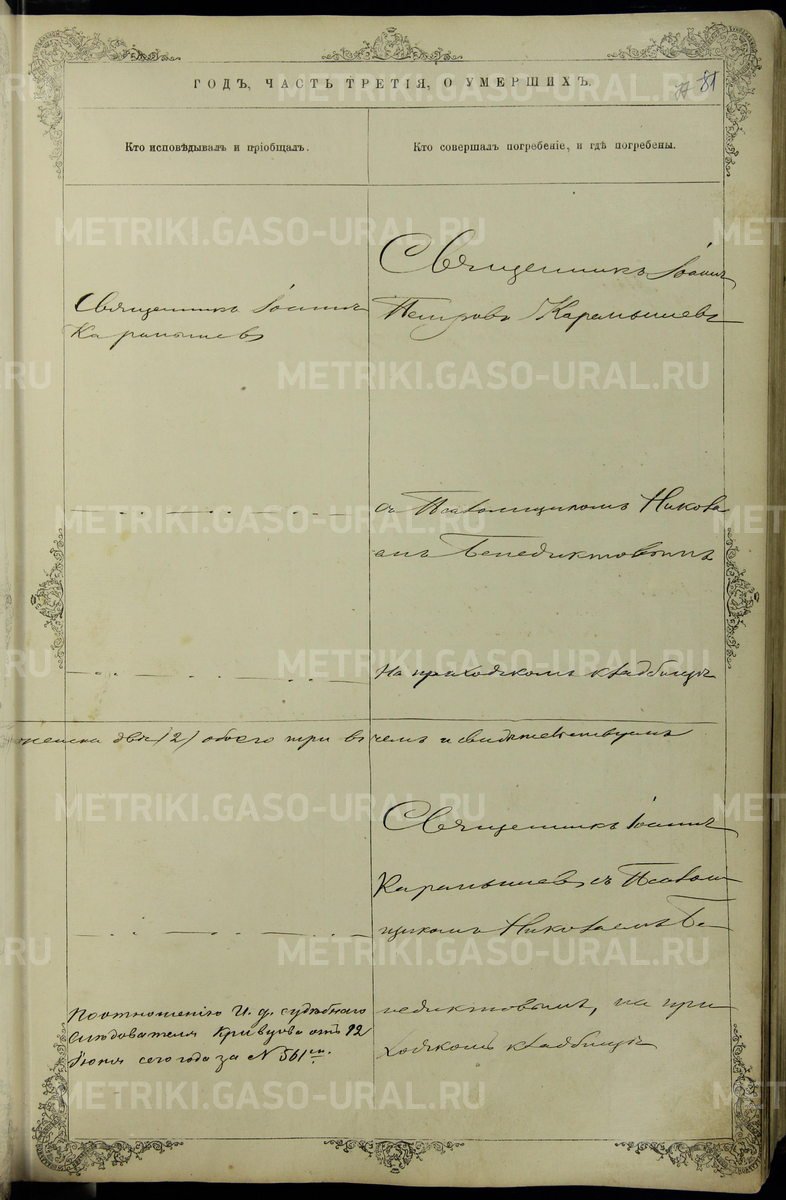 ГОДЪ, ЧАСТЬ ТРЕТІЯ, О УМЕРШИХЪ.
81
Кто исповѣдывалъ и пріобщалъ.
Кто совершалъ погребеніе, и гдѣ погребены.
Священникъ Іоаннъ
Карамышевъ
Священникъ Іоаннъ
Петровъ Карамышевъ
съ Псаломщикомъ Никола
емъ Бенедиктовымъ
На приходскомъ кладбищѣ
женска двѣ /2/ обоего три въ чемъ и свидѣтельствуемъ
Священникъ Іоаннъ
Карамышевъ съ Псалом
щикомъ Николаемъ Бе
недиктовымъ, на при
ходскомъ кладбищѣ
По отношенію И. д. судебнаго
Слѣдователя Кривцова отъ 12
Іюня сего года за N 561
METRIKI.GASO-URAL.RU